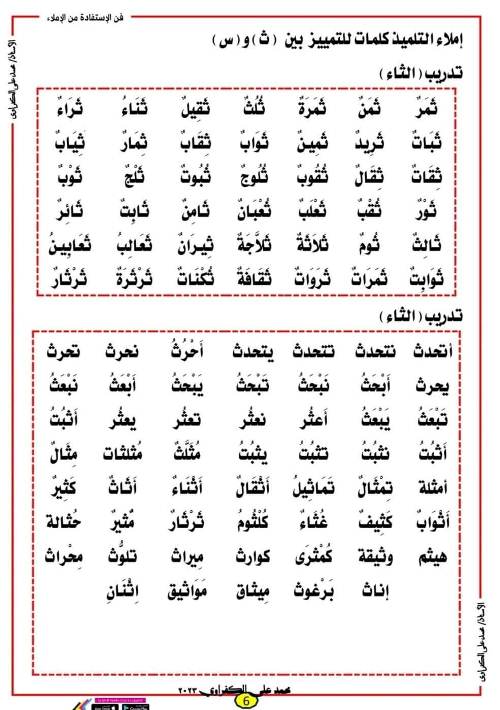 فن الإستفادة من الإملاء
إملاء التلميذ كلمات للتمييز بين (ث) و (س)
تدريب (الثاء)
ثَمَرٌ ثَمَنٌ ثَمَرَةٌ ثُلُثٌ ثَقِيلٌ ثَنَاءُ ثَرَاءٌ
ثَبَاتٌ ثَرِيدٌ ثَمِينٌ ثَوَابٌ ثِقَابٌ ثِمَارٌ ثِيَابٌ
ثِقَاتٌ ثِقَالٌ ثُقُوبٌ ثُلُوجٌ ثُبُوتٌ ثَلْجٌ ثَوْبٌ
ثَوْرٌ ثُقْبٌ ثَعْلَبٌ ثُعْبَانٌ ثَامِنٌ ثَابِتٌ ثَائِرٌ
ثَالِثٌ ثُومٌ ثَلَاثَةٌ ثَلَّاجَةٌ ثِيرَانٌ ثَعَالِبُ ثَعَابِينُ
ثَوَابِتُ ثَمَرَاتٌ ثَرَوَاتٌ ثَقَافَةٌ ثُكْنَاتٌ ثَرْثَرَةٌ ثَرْثَارٌ
تدريب (الثاء)
أتحدث نتحدث تتحدث يتحدث أَحْرُثُ نحرث تحرث
يحرث أَبْحَثُ نَبْحَثُ تَبْحَثُ يَبْحَثُ أَبْعَثُ نَبْعَثُ
تَبْعَثُ يَبْعَثُ أعثر نعثر تعثر يعثر أَثْبُتُ
أَثْبُتُ نثبُتُ تثبُتُ يثبُتُ مُثَلَّثٌ مُثلثات مِثَالٌ
أمثلة تِمْثَالٌ تَمَاثِيلُ أَثْقَالٌ أَثْنَاءُ أَثَاثٌ كَثِيرٌ
أَثْوَابٌ كَثِيفٌ غُثَاءٌ كُلْثُومُ ثَرْثَارٌ مُثيرٌ حُثالة
هيثم وثيقة كُمْثرَى كوارث ميراث تلوُّث مِحْراث
إناث بَرْغوث ميثاق مَوَاثيق اثْنَانِ
محمد علي الكفراوي ٢٠٢٣
6
الأستاذ/ محمد علي الكفراوي
الأستاذ/ محمد علي الكفراوي